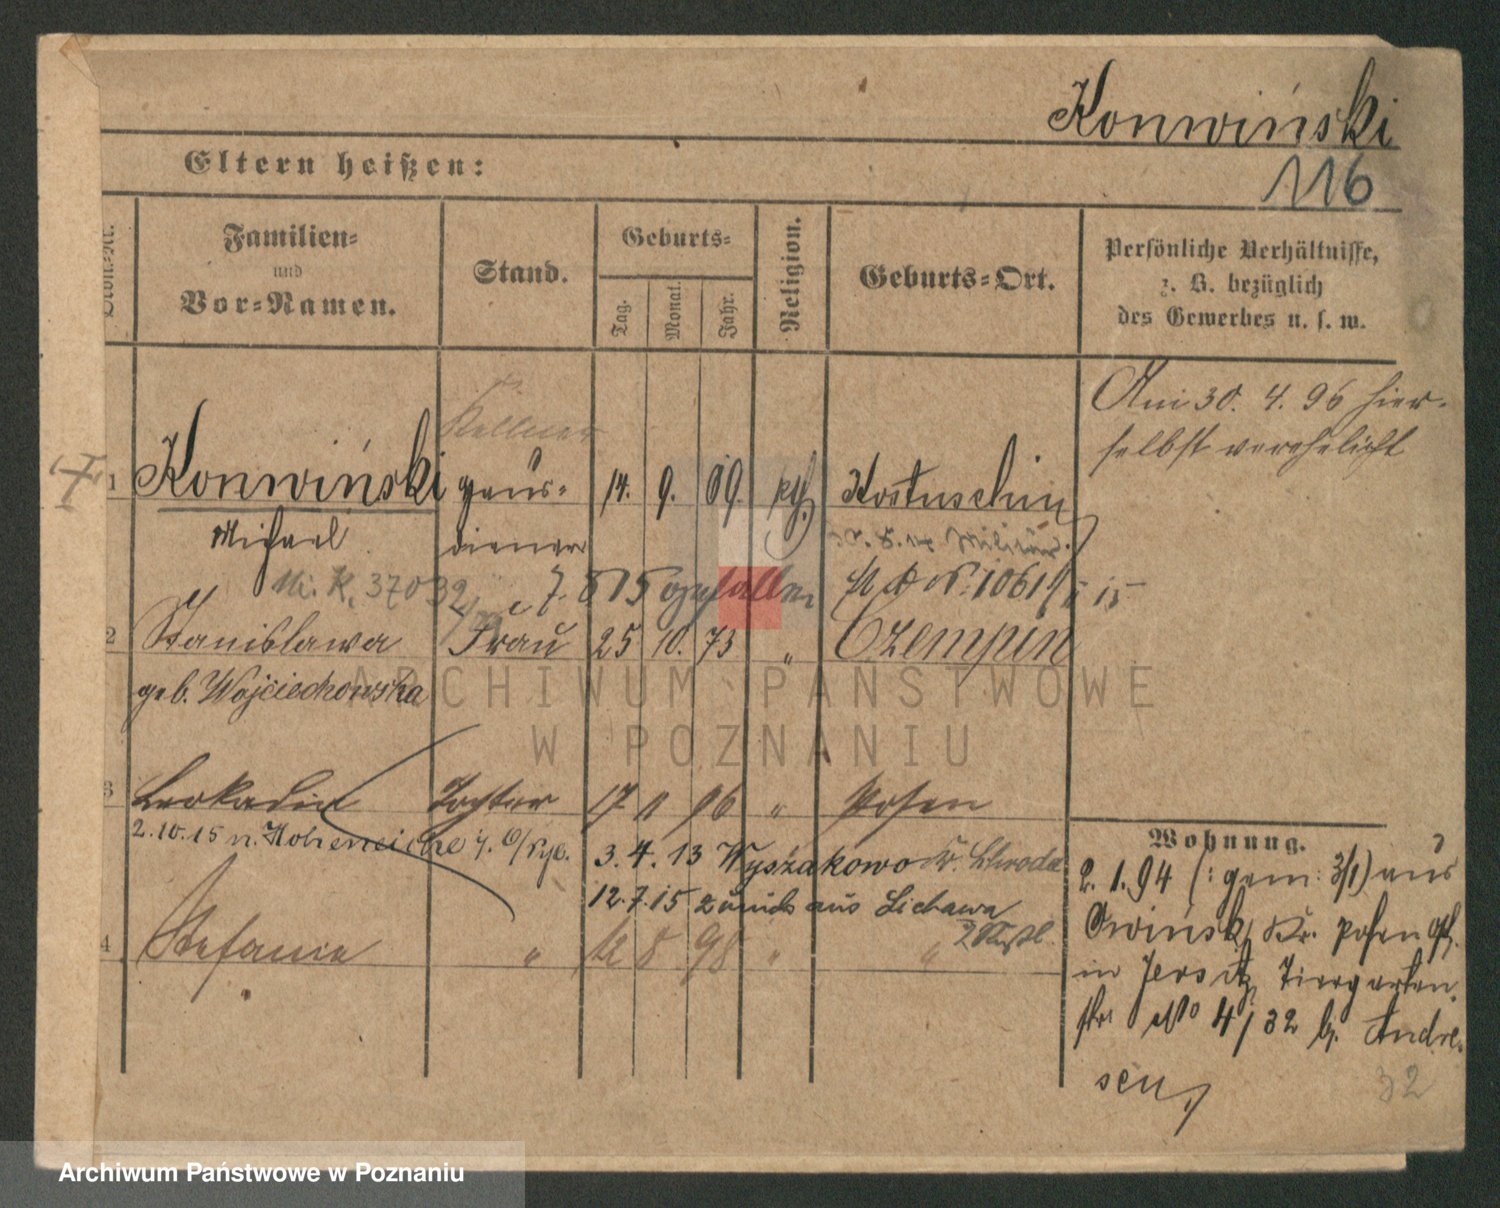 Konwiński
116
Eltern heißen:
Familien=
und
Vor=Namen.
Stand.
Geburts=
Tag.
Monat.
Jahr.
Religion.
Geburts=Ort.
Persönliche Verhältnisse,
z. B. bezüglich
des Gewerbes u. s. w.
Am 30. 4. 96 hier-
selbst verehelicht
Kellner
1 Konwiński Haus- 14. 9. 69. kth. Kostuschin
Michael diener 30. 8. 14 Militär
M. K. 37032 7. 8 15 gefallen 1061
2 Stanislawa Frau 25 10. 73 " Czempin
geb. Wojciechowska
3 Leokadia Tochter 17 11 96 " Posen
2.10.15 n. Hoheneiche
3. 4. 13 Wyszakowo Kr. Schroda
12.7.15 zurück aus Lichawa
4 Stefanie " 12 8 98 " "
Wohnung.
2. 1. 94 (: gem: 3/1) aus
Owinsk, Kr. Posen
in Jersitz, Tiergarten-
str No 4/32 b. Andre-
sen,
32
ARCHIWUM PAŃSTWOWE
W POZNANIU
Archiwum Państwowe w Poznaniu